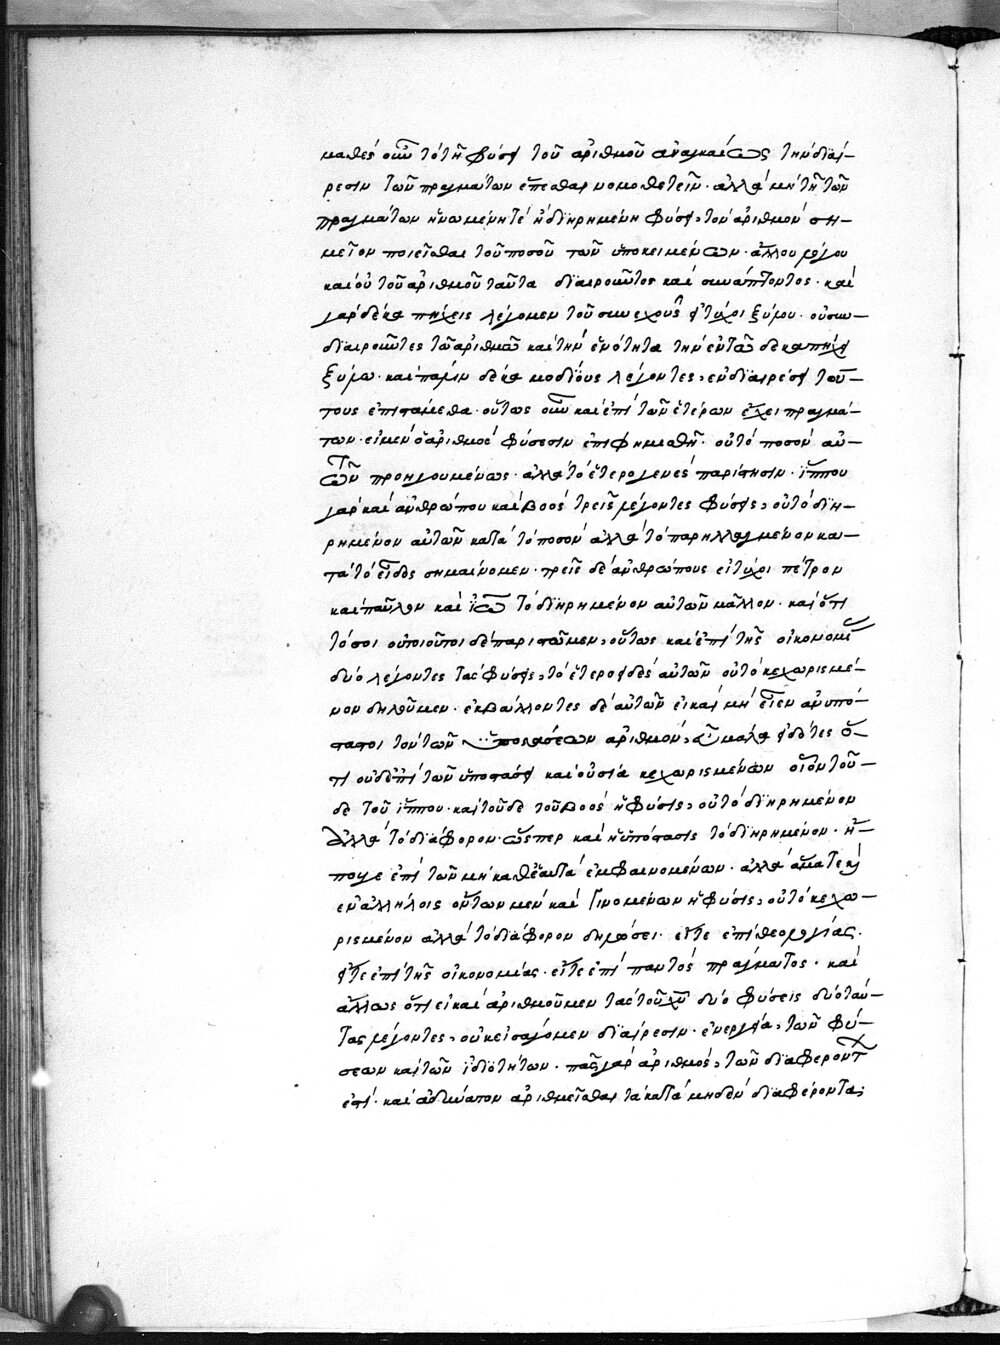 μαθὲς οὖν τὸ τῆ φύσει τοῦ ἀριθμοῦ ἀναγκαίως τὴν διαί-
ρεσιν τῶν πραγμάτων ἕπεσθαι νομοθετεῖν· ἀλλὰ μὴ τῆ τῶν
πραγμάτων ἡνωμένη τὲ ἢ διηρημένη φύσει, τὸν ἀριθμὸν ση-
μεῖον ποιεῖσθαι τοῦ ποσοῦ τῶν ὑποκειμένων· ἄλλου λόγου
καὶ οὐ τοῦ ἀριθμοῦ ταῦτα διαιροῦντος καὶ συνάπτοντος· καὶ
γὰρ δέκα πήχεις λέγομεν τοῦ συνεχοῦς εἰ τύχοι ξύλου· οὐ συν-
διαιροῦντες τῶ ἀριθμῶ καὶ τὴν ἑνότητα τὴν ἐν τῶ δεκαπήχει
ξύλω· καὶ πάλιν δέκα μοδίους λέγοντες, ἐν διαιρέσει τού-
τους ἐπιστάμεθα· οὕτως οὖν καὶ ἐπὶ τῶν ἑτέρων ἔχει πραγμά-
των· εἰ μὲν ὁ ἀριθμὸς φύσεσιν ἐπιφημισθῆ· οὐ τὸ ποσὸν αὐ-
τῶν προηγουμένως· ἀλλὰ τὸ ἑτερογενὲς παρίστησιν· ἵππου
γὰρ καὶ ἀνθρώπου καὶ βοὸς τρεῖς λέγοντες φύσεις, οὐ τὸ διη-
ρημένον αὐτῶν κατὰ τὸ ποσὸν ἀλλὰ τὸ παρηλλαγμένον κα-
τὰ τὸ εἶδος σημαίνομεν· τρεῖς δὲ ἀνθρώπους εἰ τύχοι πέτρον
καὶ παῦλον καὶ ἰω τὸ διηρημένον αὐτῶν μᾶλλον· καὶ ὅτι
τόσοι οὐ ποῖοι δὲ παριστῶμεν, οὕτως καὶ ἐπὶ τῆς οἰκονομί
δύο λέγοντες τὰς φύσεις, τὸ ἑτεροειδὲς αὐτῶν οὐ τὸ κεχωρισμέ-
νον δηλοῦμεν· ἐκβάλλοντες δὲ αὐτῶν εἰ καὶ μὴ εἶεν ἀνυπό-
στατοι τὸν τῶν ὑποστάσεων ἀριθμὸν, εὖ μάλα εἰδότες ὅ-
τι οὐδὲ ἐπὶ τῶν ὑποστάσει καὶ οὐσία κεχωρισμένων οἷον τοῦ-
δε τοῦ ἵππου· καὶ τοῦδε τοῦ βοὸς ἡ φύσις, οὐ τὸ διηρημένον
ἀλλὰ τὸ διάφορον· ὥσπερ καὶ ἡ ὑπόστασις τὸ διηρημένον· ἤ-
που γε ἐπὶ τῶν μὴ καθ' ἑαυτὰ ἐμφαινομένων· ἀλλὰ ἅμα τε καὶ
ἐν ἀλλήλοις ὄντων μὲν καὶ γινομένων ἡ φύσις, οὐ τὸ κεχω-
ρισμένον ἀλλὰ τὸ διάφορον δηλώσει· εἴτε ἐπὶ θεολογίας·
εἴτε ἐπὶ τῆς οἰκονομίας· εἴτε ἐπὶ παντὸς πράγματος· καὶ
ἄλλως ὅτι εἰ καὶ ἀριθμοῦμεν τὰς τοῦ χυ δύο φύσεις δύο ταύ-
τας λέγοντες, οὐκ εἰσάγομεν διαίρεσιν· ἐνεργεία, τῶν φύ-
σεων καὶ τῶν ἰδιοτήτων· πᾶς γὰρ ἀριθμὸς, τῶν διαφερόντ
ἐστί· καὶ ἀδύνατον ἀριθμεῖσθαι τὰ κατὰ μηδὲν διαφέροντα;